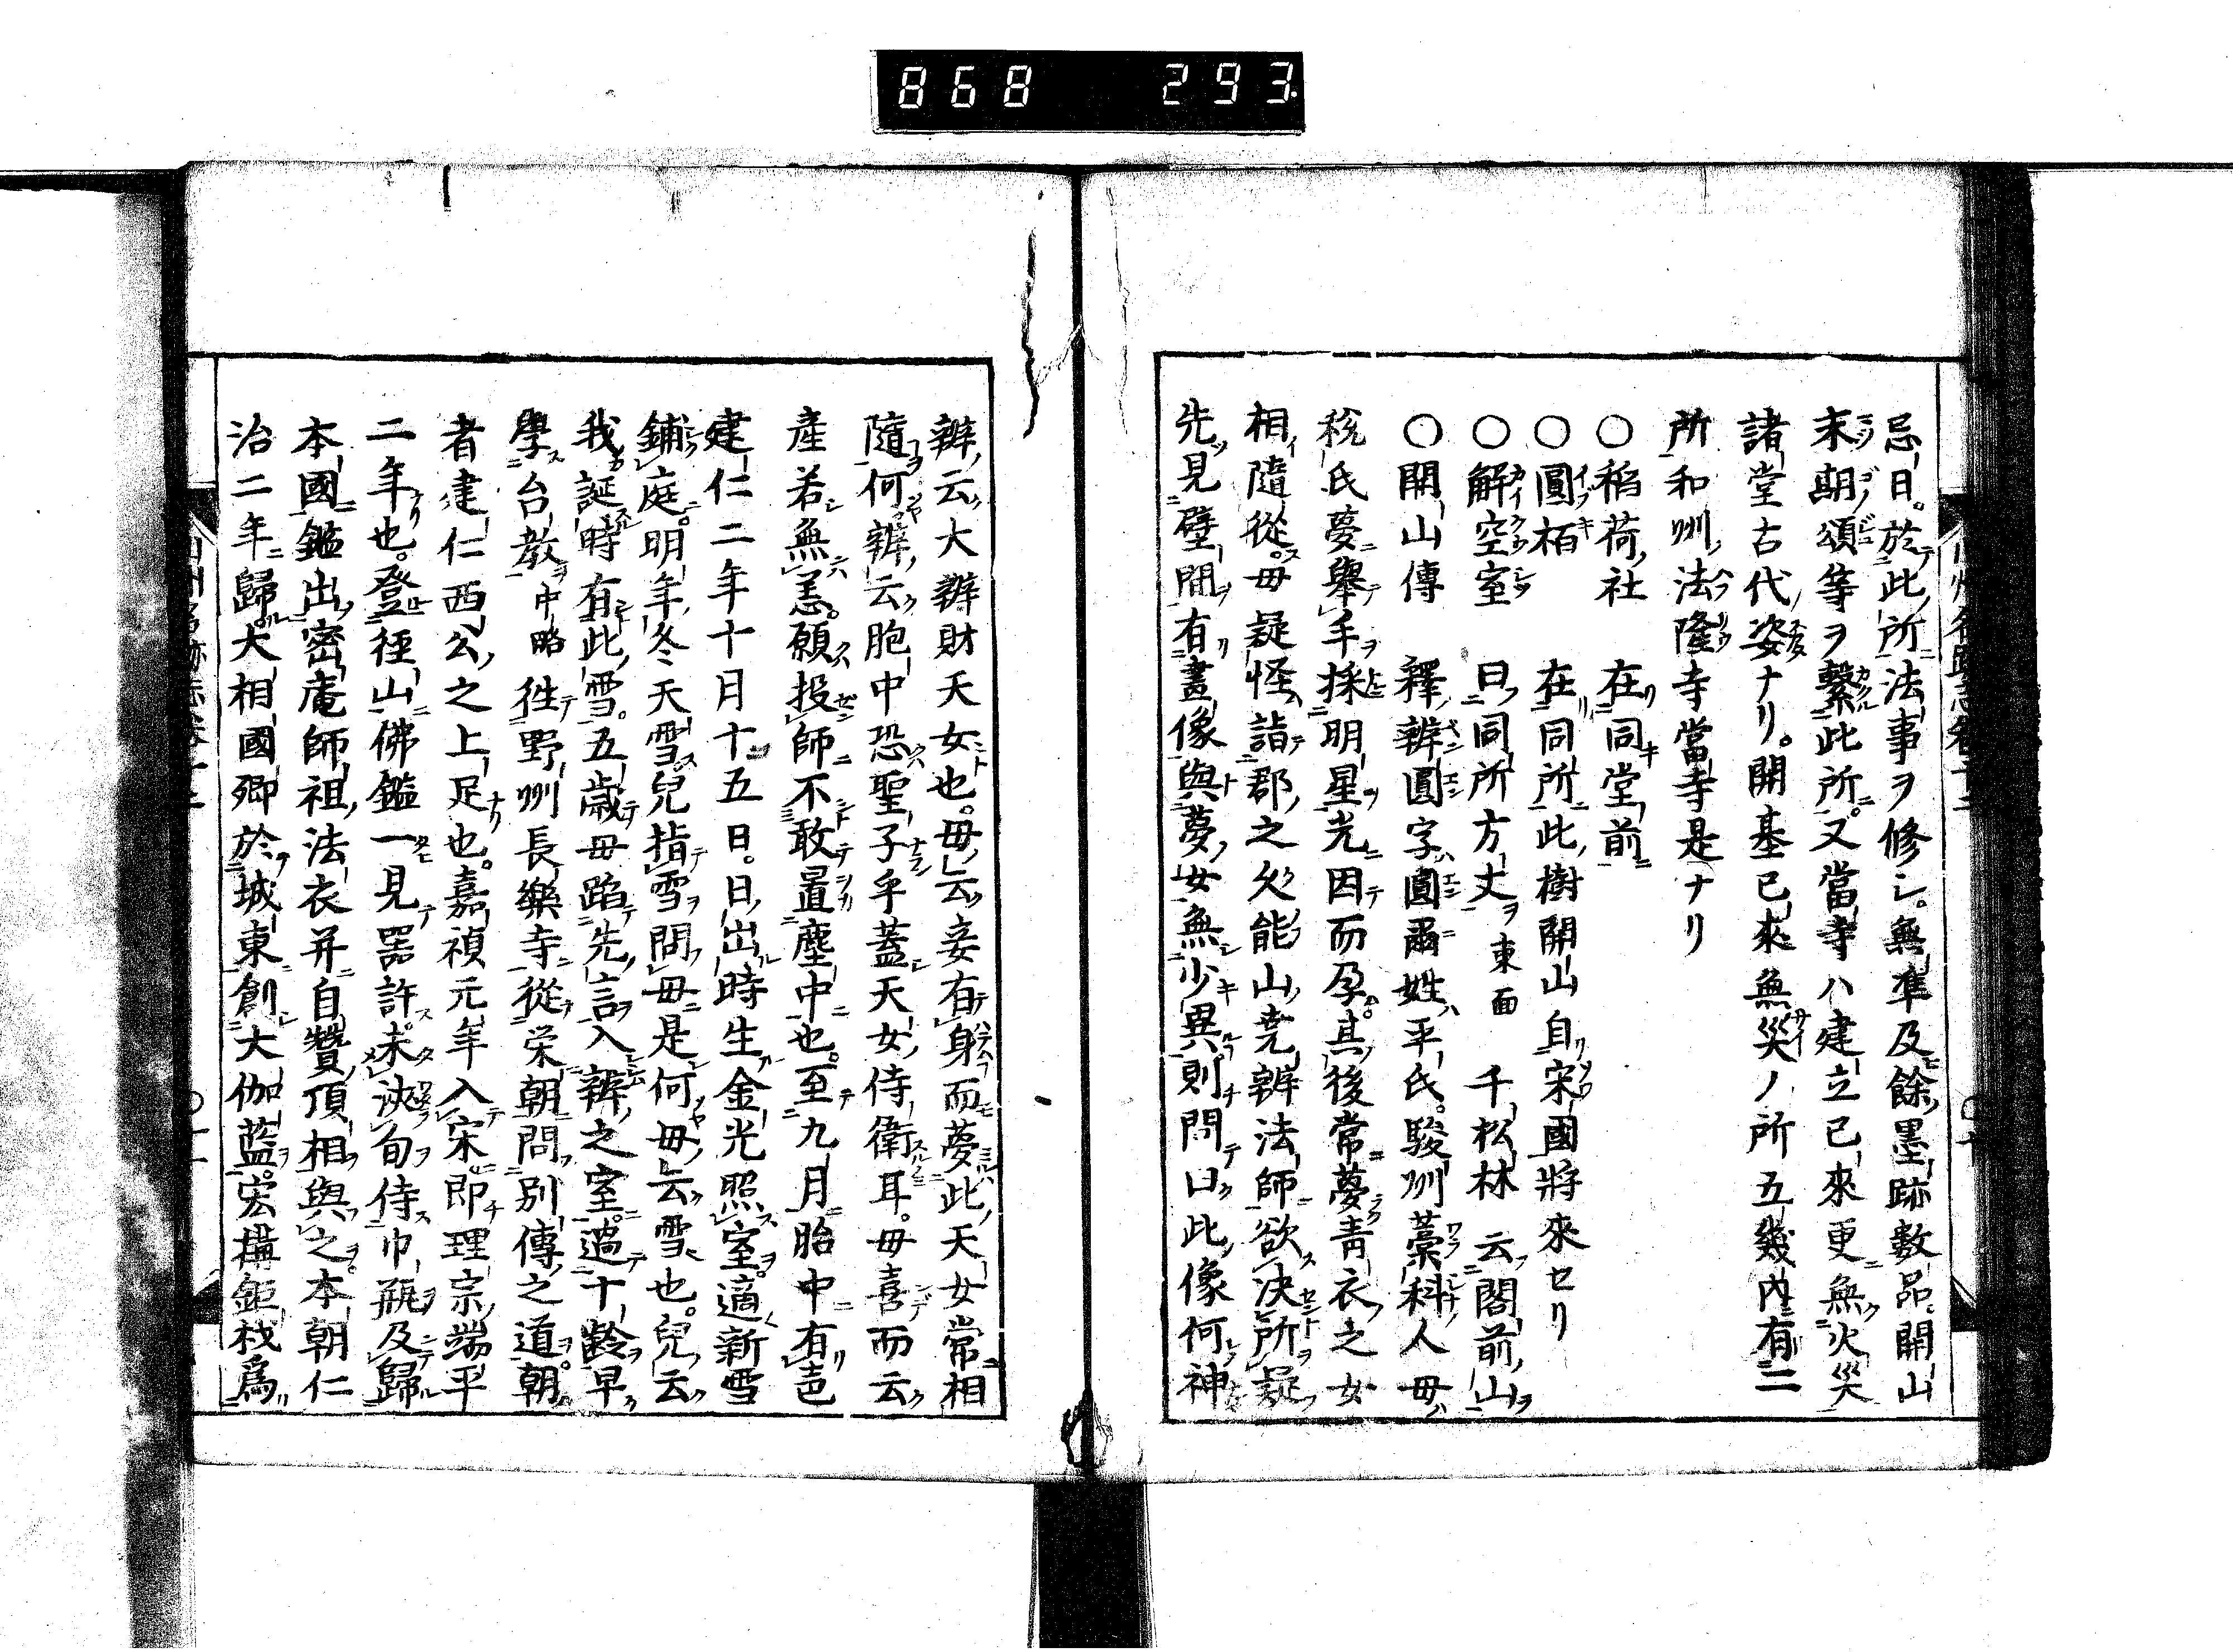 868 293
忌日於此所法事ヲ修シ。無準及餘墨跡數品。開山
末期頌等ヲ繫此所。又當寺ハ建立已來更無火災
諸堂古代姿ナリ。開基已來無災ノ所五幾内有二
所和州法隆寺當寺是ナリ
〇稻荷社 在同堂前
〇圓栢 在同所此樹開山自宋國將來セリ
〇解空室 曰同所方丈東面 千松林 云閣前山
〇開山傳 釋辨圓字圓爾姓平氏。駿州藁科人母
税氏夢擧手採明星光因而孕。其後常夢青衣之女
相隨從。母疑怪詣郡之久能山尭辨法師欲決所疑
先見壁間有畫像與夢女無少異則問曰此像何神
辨云大辨財天女也。母云妾有身而夢此天女常相
隨何辨云胞中恐聖子乎蓋天女侍衛耳。母喜而云
產若無恙。願投師不敢置塵中也。至九月胎中有㐯
建仁二年十月十五日。日出時生金光照室。適新雪
鋪庭。明年冬天雪兒指雪問母是何母云雪也。兒云
我誕時有此雪。五歳母蹈先言入辨之室。過十齡早
學台教中略徃野州長樂寺從栄朝問別傳之道。朝
者建仁西公之上足也。嘉禎元年入宋即理宗端平
二年也。登徑山佛鑑一見器許未浹旬侍巾瓶及歸
本國鑑出密庵師祖法衣并自贊頂相與之。本朝仁
治二年歸大相國卿於城東創大伽藍。宏構鉅材爲